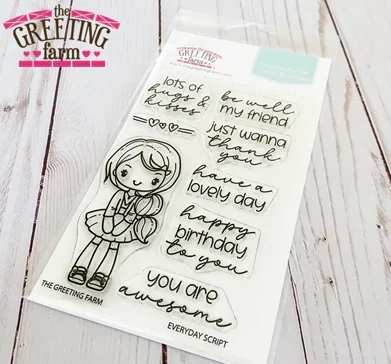 the
GREETING
farm
the
GREETING
farm
lots of
hugs &
kisses
be well
my friend
just wanna
thank
you
have a
lovely day
happy
birthday
to you
you are
awesome
THE GREETING FARM
EVERYDAY SCRIPT